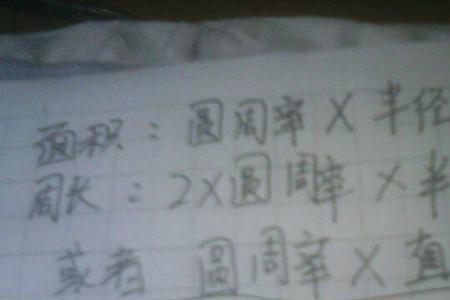 面积：圆周率×半径
周长：2×圆周率×半
或者 圆周率×直